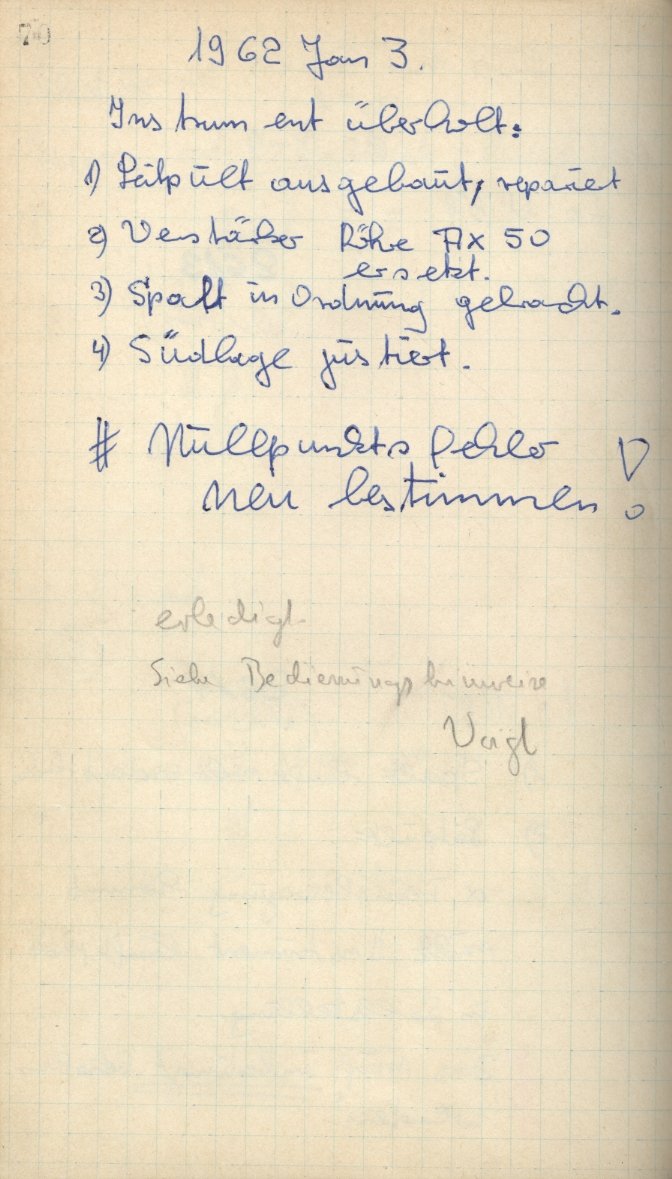 70
1962 Jan 3.
Instrument überholt:
1) Leitpult ausgebaut, repariert
2) Verstärker Röhre AX 50
ersetzt.
3) Spalt in Ordnung gebracht.
4) Südlage justiert.
# Nullpunktsfehler
neu bestimmen!
erledigt.
Siehe Bedienungshinweise
Voigt